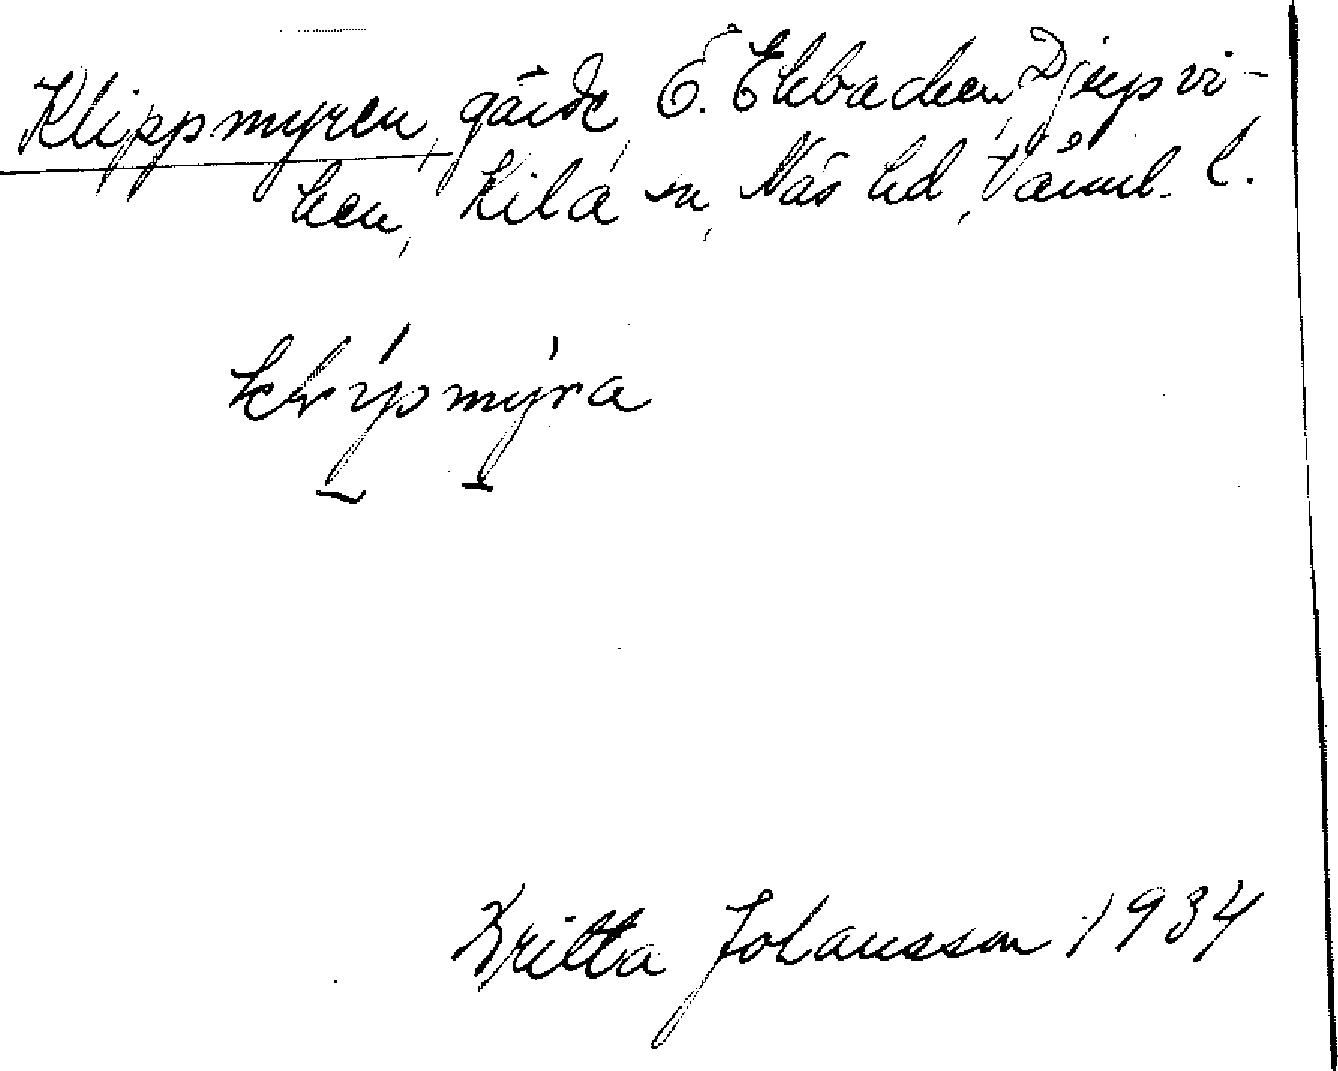 Klippmyren, gärde, Ö. Ekbacken, Djupvi-
ken, Kila sn, Näs hd, Värml. l.
Britta Johansson 1934